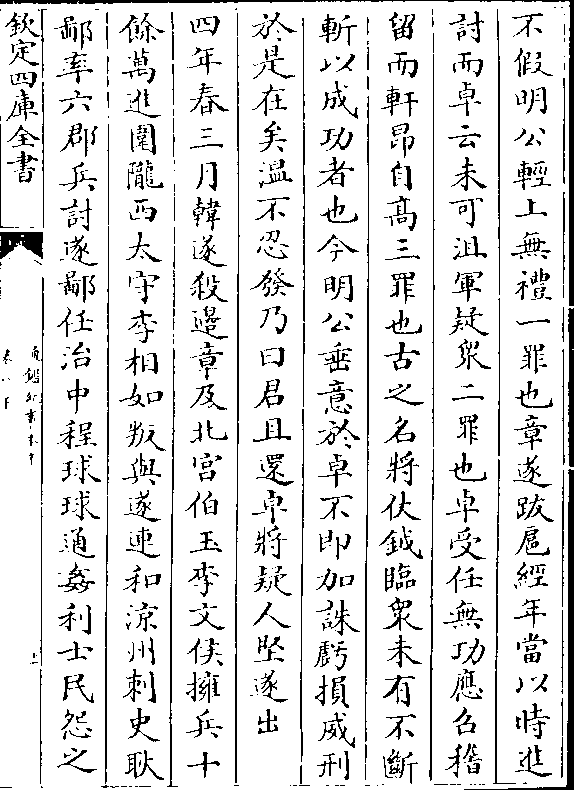 不假明公輕上無禮一罪也章遂跋扈經年當以時進
討而卓云未可沮軍疑衆二罪也卓受任無功應召稽
留而軒昂自髙三罪也古之名將仗鉞臨衆未有不斷
斬以成功者也今明公垂意於卓不即加誅虧損威刑
於是在矣温不忍發乃曰君且還卓將疑人堅遂出
四年春三月韓遂殺邉章及北宫伯玉李文侯擁兵十
餘萬進圍隴西太守李相如叛與遂連和涼州刺史耿
鄙率六郡兵討遂鄙任治中程球球通姦利士民怨之
欽定四庫全書